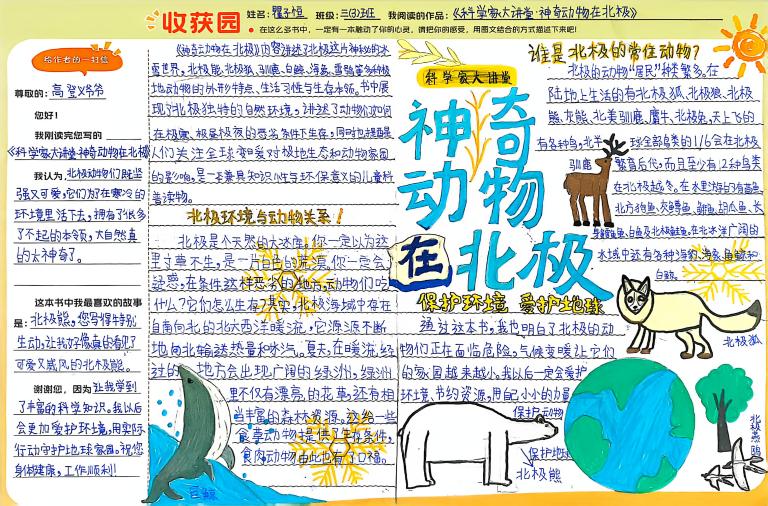 收获园
姓名：瞿子恒 班级：三(3)班 我阅读的作品：《科学家大讲堂·神奇动物在北极》
在这么多书中，一定有一本触动了你的心灵，请把你的感受，用图文结合的方式描述下来吧！
给作者的一封信
尊敬的：高登义爷爷
您好！
我刚读完您写的
《科学家大讲堂·神奇动物在北极》
我认为，北极动物们既坚
强又可爱，它们为了在寒冷的
环境里活下去，拥有了很多
了不起的本领，大自然真
的太神奇了。
这本书中我最喜欢的故事
是：北极熊，您写得特别
生动，让我好像真的看见了
可爱又威风的北极熊。
谢谢您，因为让我学到
了丰富的科学知识。我以后
会更加爱护环境，用实际
行动守护地球家园。祝您
身体健康，工作顺利！
《神奇动物在北极》内容讲述了北极这片神秘的冰
雪世界，北极熊、北极狐、驯鹿、白鲸、海象、雪鸮等多种极
地动物的外形特点、生活习性与生存本领。书中展
现了北极独特的自然环境，讲述了动物们如何
在极寒、极昼极夜的恶劣条件下生存，同时也提醒
人们关注全球变暖对极地生态和动物家园
的影响，是一本兼具知识性与环保意义的儿童科
普读物。
北极环境与动物关系！
北极是个天然的大冰库！你一定以为这
里寸草不生，是一片白色的荒漠。你一定会
疑惑，在条件这样恶劣的地方，动物们吃
什么？它们怎么生存？其实，北极海域中存在
自南向北的北大西洋暖流，它源源不断
地向北输送热量和水汽。夏天，在暖流经
过的地方会出现广阔的绿洲，绿洲
里不仅有漂亮的花草，还有相
当丰富的森林资源。这给一些
食草动物提供了生存条件，
食肉动物由此也有了口福。
巨鲸
科学家大讲堂
神奇
动物
在北极
保护环境 爱护地球
通过这本书，我也明白了北极的动
物们正在面临危险，气候变暖让它们
的家园越来越小。我以后一定会爱护
环境、节约资源，用自己小小的力量
保护动物
保护地球
北极熊
谁是北极的常住动物？
北极的动物“居民”种类繁多。在
陆地上生活的有北极狐、北极狼、北极
熊、灰熊、北美驯鹿、麝牛、北极兔，天上飞的
有各种鸟，北半球全部鸟类的1/6会在北极
繁育后代，而且至少有12种鸟类
在北极越冬。在水里游的有茴鱼、
北方狗鱼、灰鳟鱼、鲱鱼、胡瓜鱼、长
身鳕鱼、白鱼及北极鲑鱼。在北冰洋广阔的
水域中还有各种海豹、海象、角鲸和
白鲸。
驯鹿
北极狐
北极燕鸥